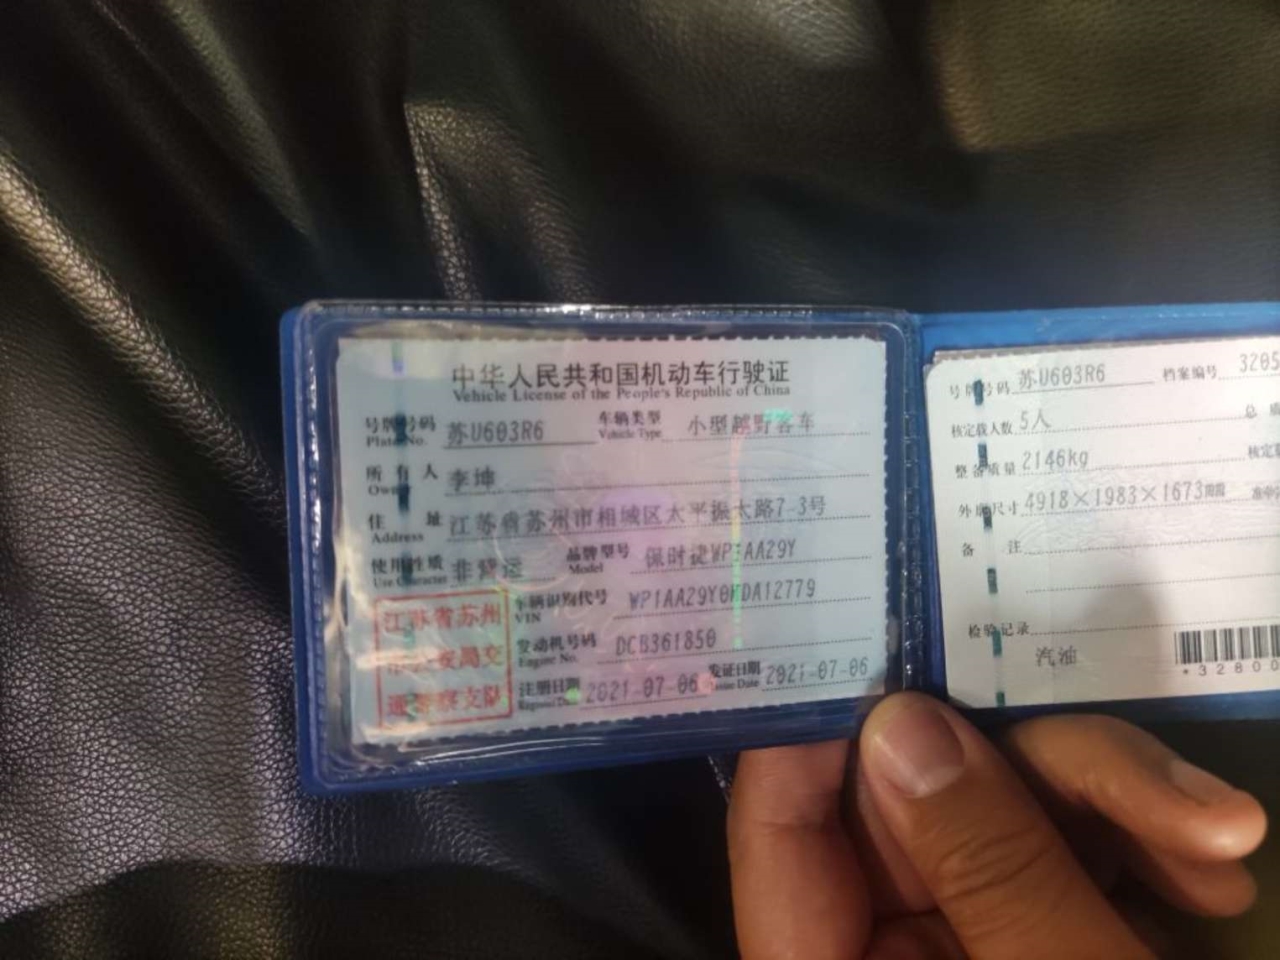 中华人民共和国机动车行驶证
Vehicle License of the People's Republic of China
号牌号码 苏U603R6 车辆类型 小型越野客车
Plate No. Vehicle Type
所有人 李坤
Owner
住址 江苏省苏州市相城区太平振太路7-3号
Address
使用性质 非营运 品牌型号 保时捷WP1AA29Y
Use Character Model
车辆识别代号 WP1AA29Y0MDA12779
VIN
发动机号码 DCB361850
Engine No.
注册日期 2021-07-06 发证日期 2021-07-06
Register Date Issue Date
江苏省苏州
市公安局交
通警察支队
号牌号码 苏U603R6 档案编号 3205
核定载人数 5人 总质
整备质量 2146kg 核定
外廓尺寸 4918×1983×1673
备注
检验记录
汽油
*32800